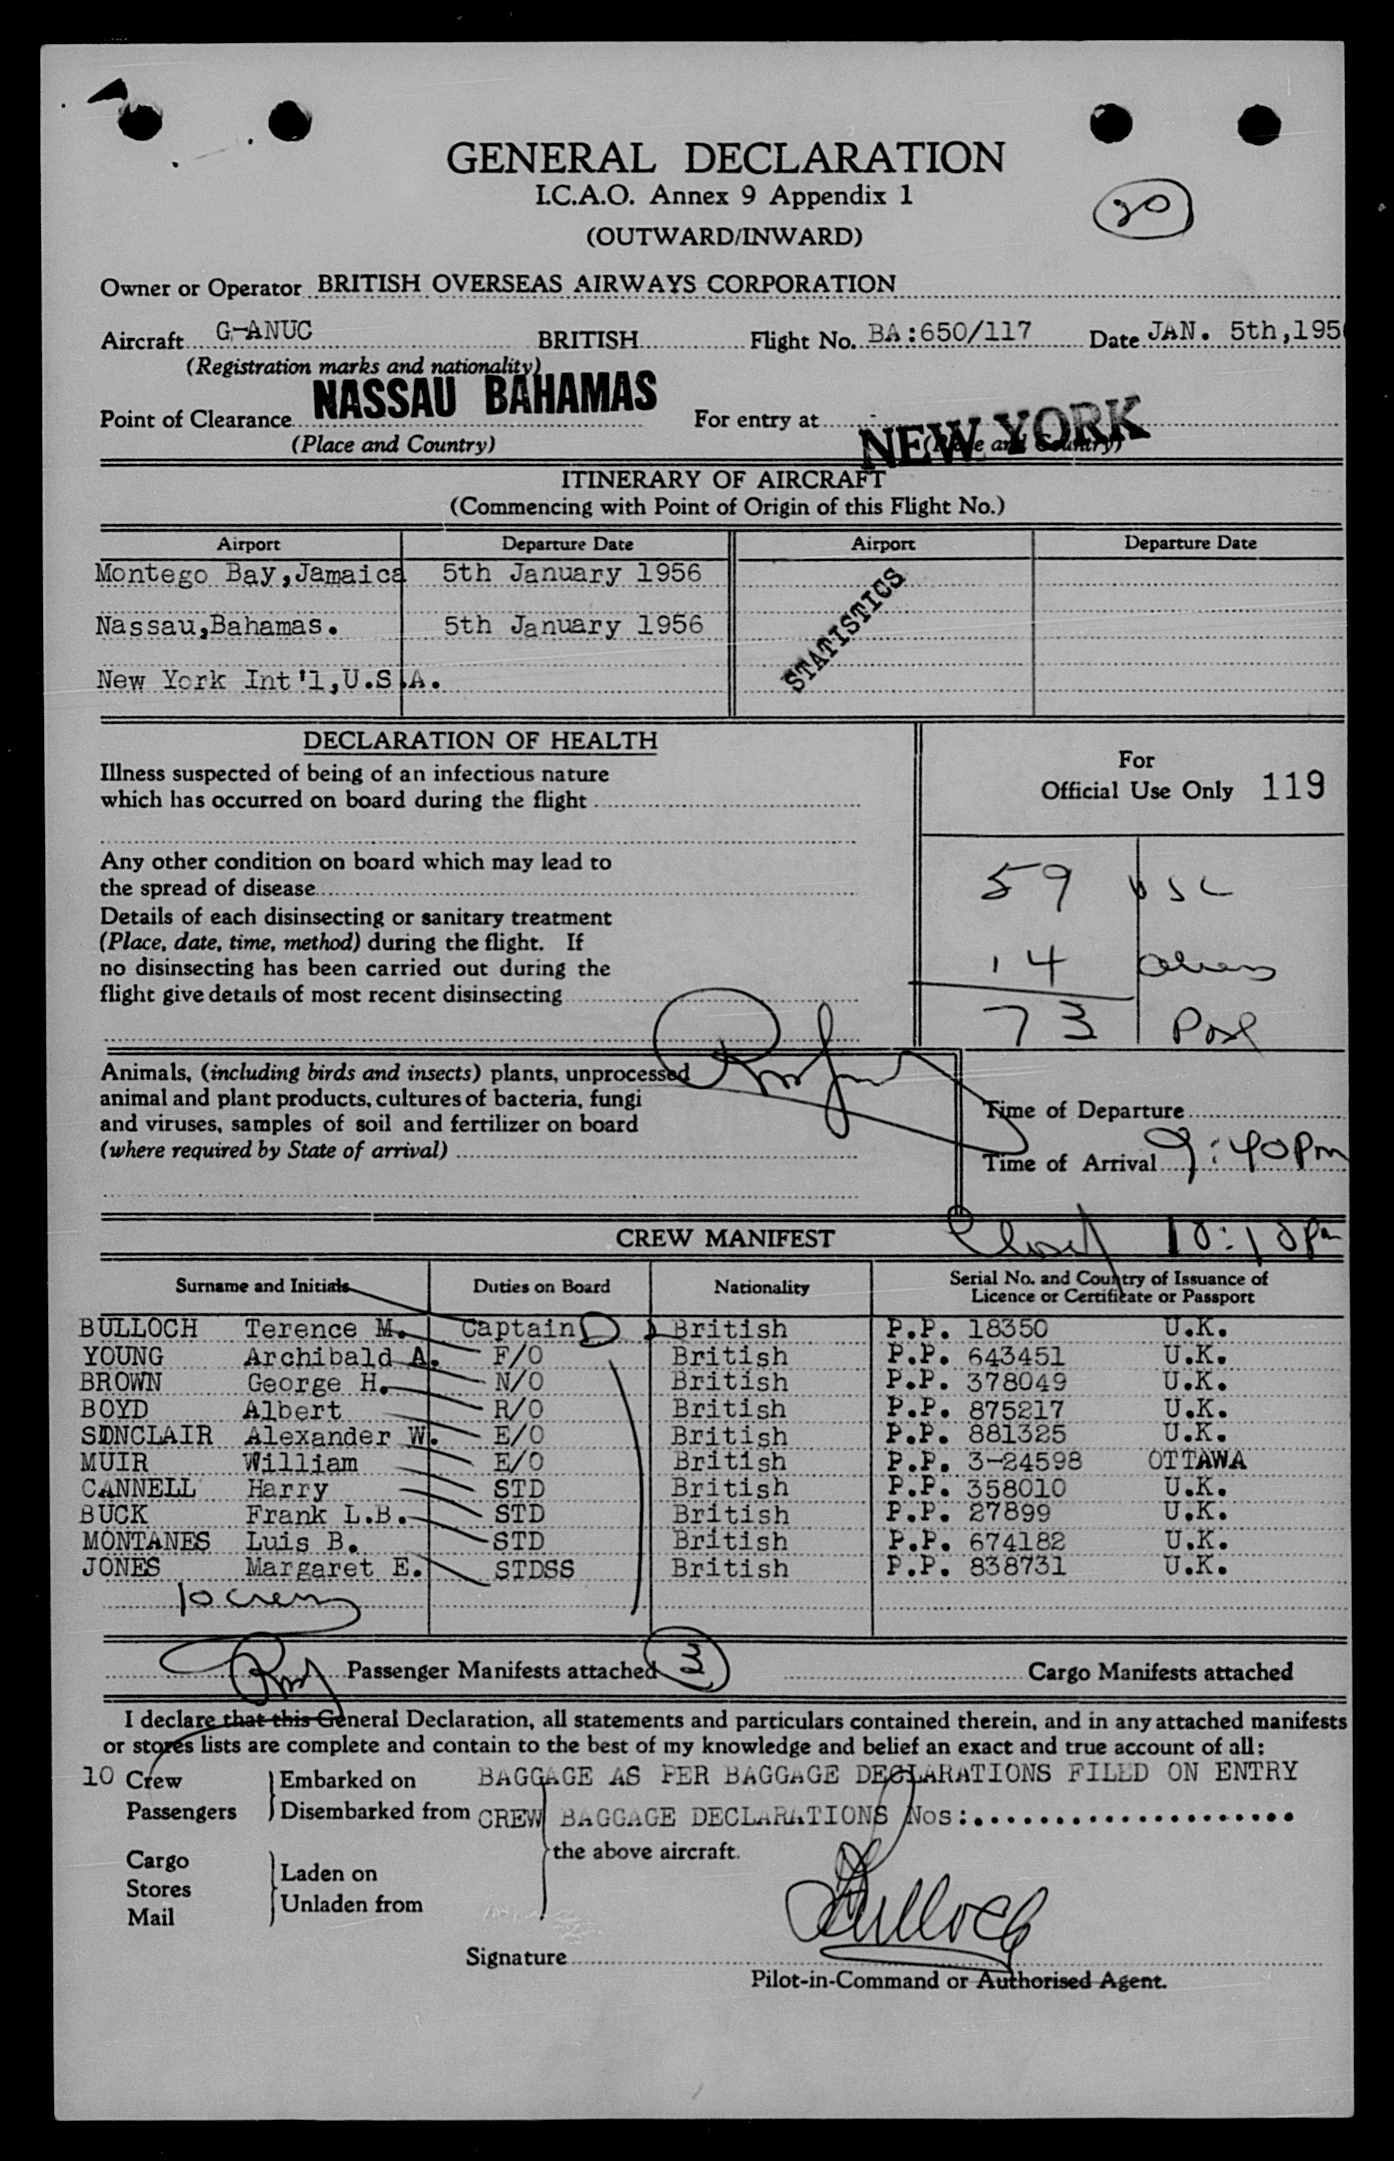 GENERAL DECLARATION
I.C.A.O. Annex 9 Appendix 1
20
(OUTWARD/INWARD)
Owner or Operator BRITISH OVERSEAS AIRWAYS CORPORATION
Aircraft G-ANUC BRITISH Flight No. BA:650/117 Date JAN. 5th,195
(Registration marks and nationality)
Point of Clearance NASSAU BAHAMAS For entry at NEW YORK
(Place and Country) (Place and Country)
ITINERARY OF AIRCRAFT
(Commencing with Point of Origin of this Flight No.)
Airport Departure Date Airport Departure Date
Montego Bay,Jamaica 5th January 1956
STATISTICS
Nassau,Bahamas. 5th January 1956
New York Int'l,U.S.A.
DECLARATION OF HEALTH
Illness suspected of being of an infectious nature
which has occurred on board during the flight
For
Official Use Only 119
Any other condition on board which may lead to
the spread of disease
59 USC
Details of each disinsecting or sanitary treatment
(Place, date, time, method) during the flight. If
no disinsecting has been carried out during the
flight give details of most recent disinsecting
14 aliens
73
Animals, (including birds and insects) plants, unprocessed
animal and plant products, cultures of bacteria, fungi
and viruses, samples of soil and fertilizer on board
(where required by State of arrival)
Time of Departure
Time of Arrival 9:40pm
CREW MANIFEST Closed 10:10pm
Surname and Initials Duties on Board Nationality Serial No. and Country of Issuance of
Licence or Certificate or Passport
BULLOCH Terence M. Captain British P.P. 18350 U.K.
YOUNG Archibald A. F/O British P.P. 643451 U.K.
BROWN George H. N/O British P.P. 378049 U.K.
BOYD Albert R/O British P.P. 875217 U.K.
SINCLAIR Alexander W. E/O British P.P. 881325 U.K.
MUIR William E/O British P.P. 3-24598 OTTAWA
CANNELL Harry STD British P.P. 358010 U.K.
BUCK Frank L.B. STD British P.P. 27899 U.K.
MONTANES Luis B. STD British P.P. 674182 U.K.
JONES Margaret E. STDSS British P.P. 838731 U.K.
10 crew
Passenger Manifests attached 3 Cargo Manifests attached
I declare that this General Declaration, all statements and particulars contained therein, and in any attached manifests
or stores lists are complete and contain to the best of my knowledge and belief an exact and true account of all:
10 Crew Embarked on BAGGAGE AS PER BAGGAGE DECLARATIONS FILED ON ENTRY
Passengers Disembarked from CREW BAGGAGE DECLARATIONS Nos:
the above aircraft.
Cargo
Stores
Mail
Laden on
Unladen from
Signature Bulloch
Pilot-in-Command or Authorised Agent.